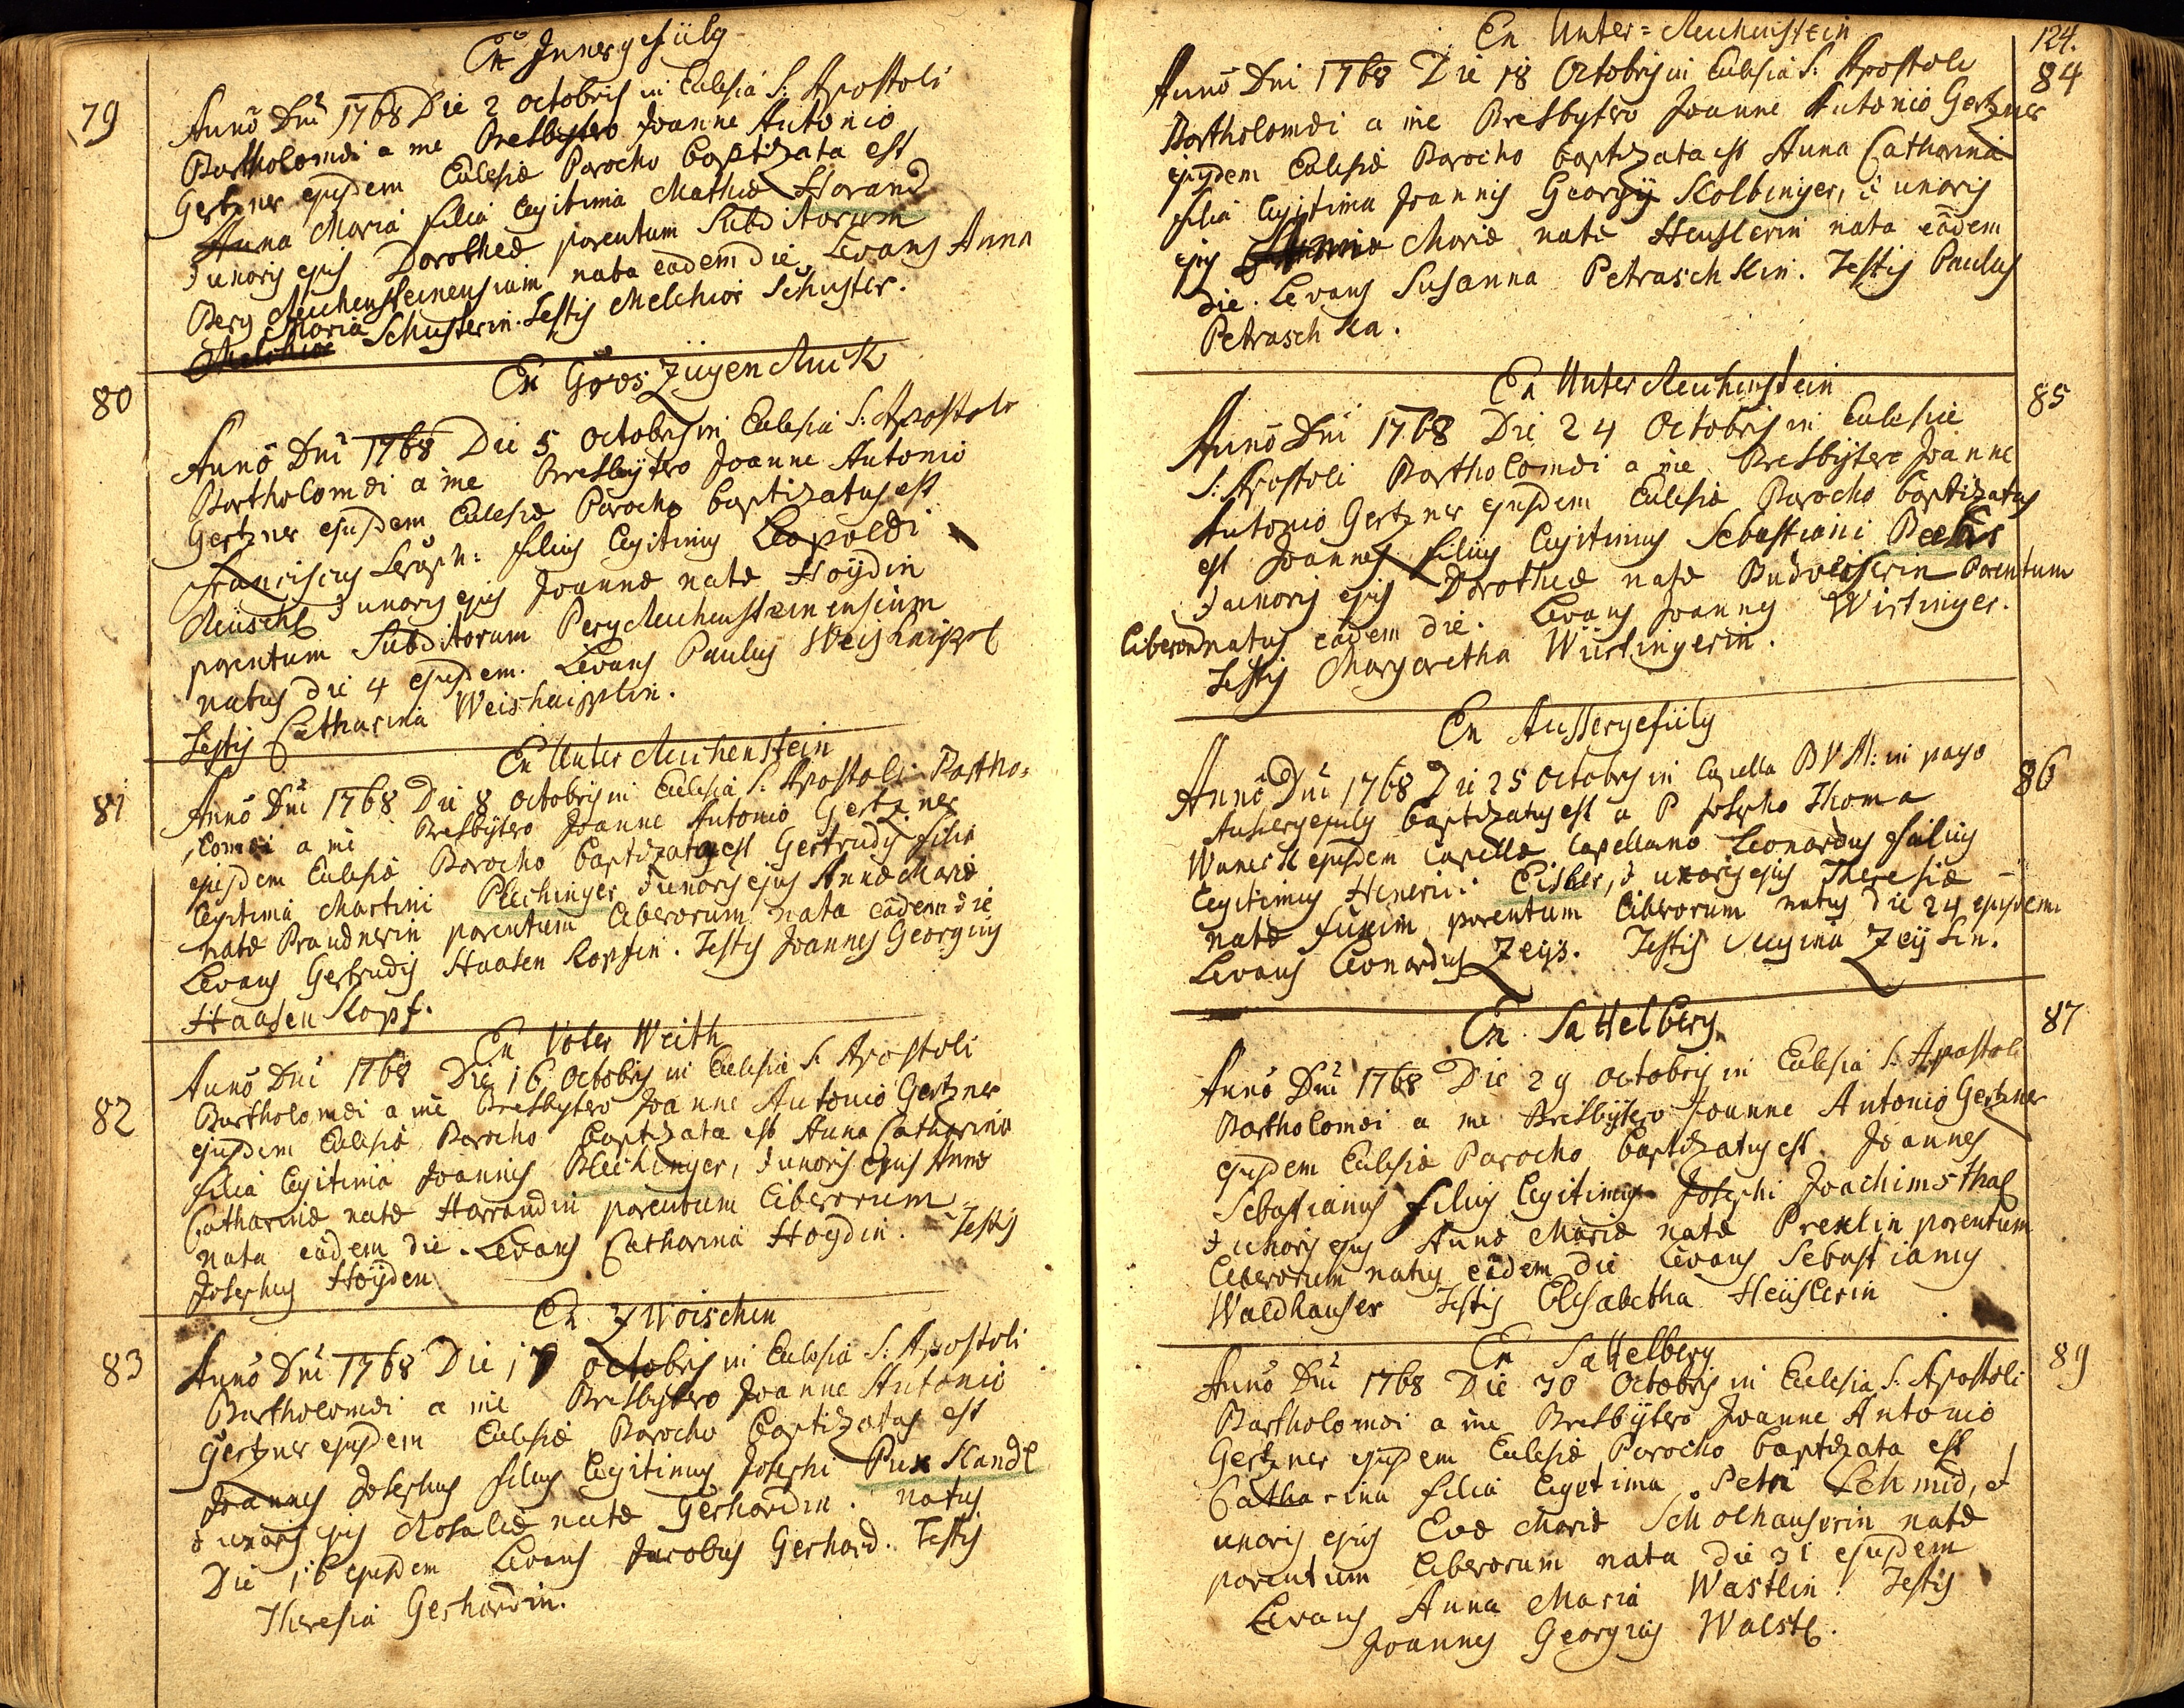 Ex Innergefülg
79
Anno Dni 1768 Die 2 octobris in Eclesia S: Apostoli
Bartholomæi a me Presbytero Joanne Antonio
Gertzner ejusdem Eclesiæ Parocho baptizata est
Anna Maria filia legitima Mathiæ Horand
& uxoris ejus Dorotheæ parentum Subditorum
Berg Reichensteinensium nata eadem die. Levans Anna
Maria Schusterin. Testis Melchior Schuster.
80
Ex Gros Zügenruck
Anno Dni 1768 Die 5 octobris in Eclesia S: Apostoli
Bartholomæi a me Presbytero Joanne Antonio
Gertzner ejusdem Eclesiæ Parocho baptizatus est
Franciscus Seraph: filius legitimus Leopoldi
Reüschl & uxoris ejus Joannæ natæ Hoÿdin
parentum Subditorum Berg Reichensteinensium
natus die 4 ejusdem. Levans Paulus Weishaippl
Testis Catharina Weishaipplin.
81
Ex Unter Reichenstein
Anno Dni 1768 Die 8 octobris in Eclesia S: Apostoli Bartho=
lomæi a me Presbytero Joanne Antonio Gertzner
ejusdem Eclesiæ Parocho baptizata est Gertrudis filia
legitima Martini Plechinger & uxoris ejus Annæ Mariæ
natæ Prandnerin parentum liberorum nata eadem die
Levans Gertrudis Haasen Kopfin. Testis Joannes Georgius
Haasen Kopf.
82
Ex Voter Weith
Anno Dni 1768 Die 16 Octobris in Eclesia S: Apostoli
Bartholomæi a me Presbytero Joanne Antonio Gertzner
ejusdem Eclesiæ Parocho baptizata est Anna Catharina
filia legitima Joannis Blechinger, & uxoris ejus Annæ
Catharinæ natæ Harrandin parentum liberorum
nata eadem die. Levans Catharina Hoydin. Testis
Josephus Hoÿden
83
Ex Zwoischen
Anno Dni 1768 Die 17 octobris in Eclesia S: Apostoli
Bartholomæi a me Presbytero Joanne Antonio
Gertzner ejusdem Eclesiæ Parocho baptizatus est
Joannes Josephus filius legitimus Josephi Pux Kandl
& uxoris ejus Rosaliæ natæ Gerhardin. natus
Die 16 ejusdem Levans Jacobus Gerhard. Testis
Theresia Gerhardin.
124.
Ex Unter=Reichenstein
84
Anno Dni 1768 Die 18 Octobris in Eclesia S: Apostoli
Bartholomæi a me Presbytero Joanne Antonio Gertzner
ejusdem Eclesiæ Parocho baptizata est Anna Catharina
filia legitima Joannis Georgÿ Kolbinger, & uxoris
ejus Mariæ natæ Heuslerin nata eadem
die. Levans Susanna Petraschkin. Testis Paulus
Petraschka.
Ex Unter Reichenstein
85
Anno Dni 1768 Die 24 Octobris in Eclesia
S: Apostoli Bartholomæi a me Presbytero Joanne
Antonio Gertzner ejusdem Eclesiæ Parocho baptizatus
est Joannes filius legitimus Sebastiani
& uxoris ejus Dorotheæ natæ Budveiserin Parentum
liberorum natus eadem die. Levans Joannes Wirtinger.
Testis Margaretha Würtingerin.
Ex Aussergefülg
86
Anno Dni 1768 Die 25 Octobris in Capella BVM: in pago
Aussergefulg baptizatus est a P Josepho Thoma
ejusdem Capellæ Capellano Leonardus filius
legitimus Henrici Eisner, & uxoris ejus Theresiæ
natæ parentum liberorum natus die 24 ejusdem
Levans Leonardus Zeÿs. Testis Regina Zeÿsin.
Ex Sattelberg
87
Anno Dni 1768 Die 29 octobris in Eclesia S: Apostoli
Bartholomæi a me Presbytero Joanne Antonio Gertzner
ejusdem Eclesiæ Parocho baptizatus est. Joannes
Sebastianus filius legitimus Josephi Joachimsthal
& uxoris ejus Annæ Mariæ natæ Prexlin parentum
liberorum natus eadem die Levans Sebastianus
Waldhauser Testis Elisabetha Heüslerin
Ex Sattelberg
89
Anno Dni 1768 Die 30 Octobris in Eclesia S: Apostoli
Bartholomæi a me Presbytero Joanne Antonio
Gertzner ejusdem Eclesiæ Parocho baptizata est
Catharina filia legitima Petri Schmid, et
uxoris ejus Evæ Mariæ Scholhauserin natæ
parentum liberorum nata die 31 ejusdem
Levans Anna Maria Wastlin. Testis
Joannes Georgius Walstl.